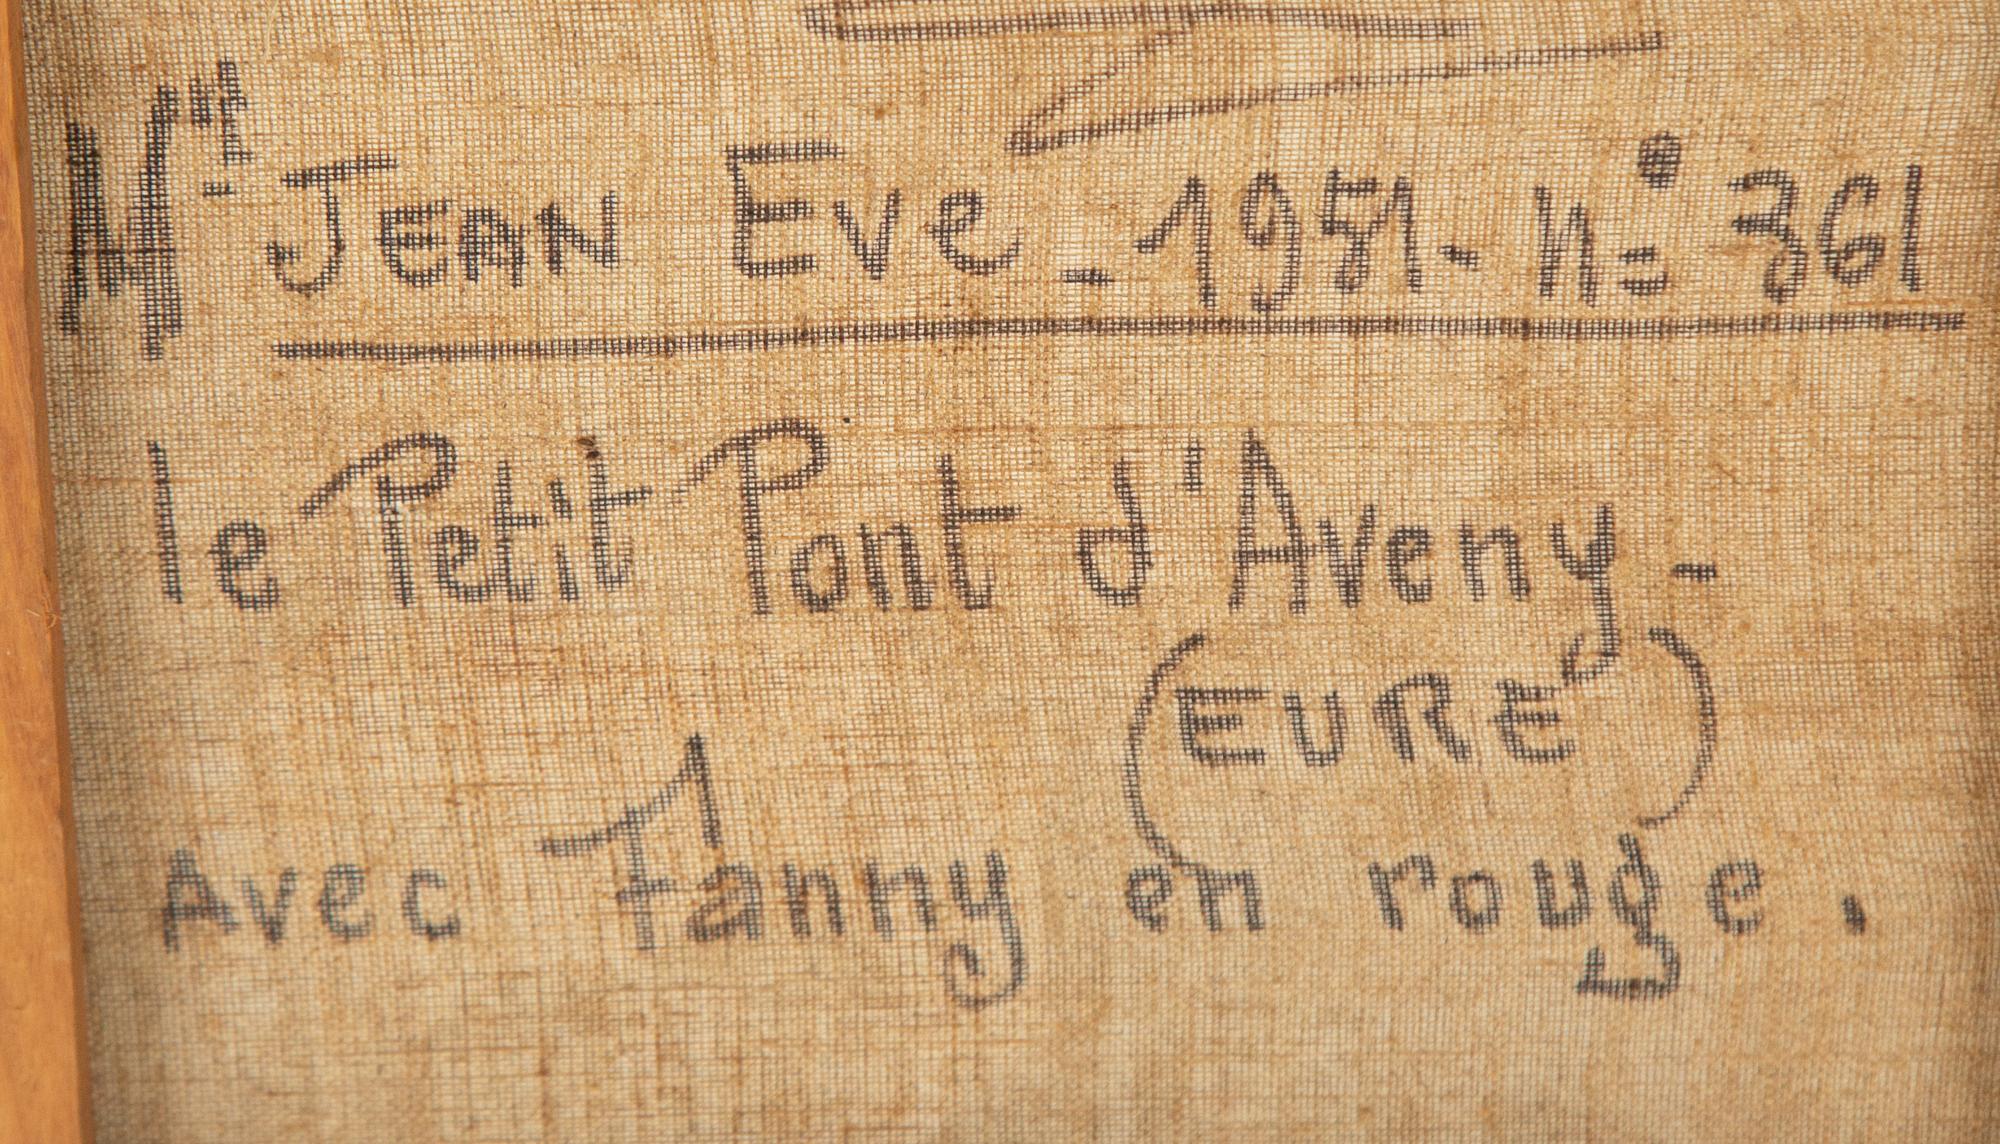 Mr Jean Eve - 1951 - n° 361
le Petit Pont d'Aveny -
(EURE)
Avec Fanny en rouge.